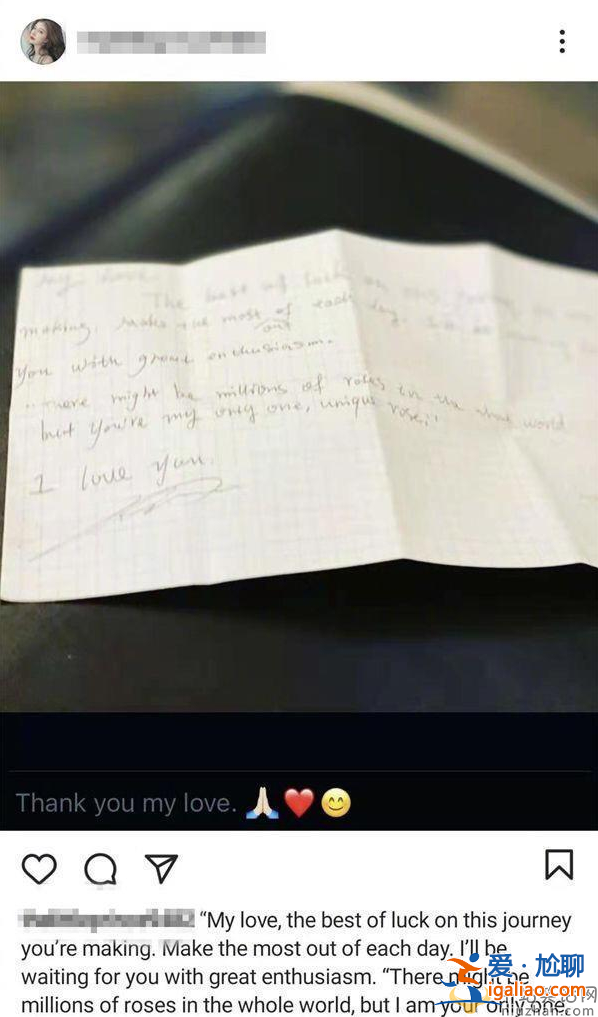 my love
The best of luck on this journey
making. Make the most of each day.
out
you with great enthusiasm.
"There might be millions of roses in the whole world
but you're my only one, unique rose;"
I love you.
Thank you my love. 🙏🏻❤️😊
"My love, the best of luck on this journey
you're making. Make the most out of each day. I'll be
waiting for you with great enthusiasm. "There might be
millions of roses in the whole world, but I am your only one,
爱·尬聊
igaliao.com